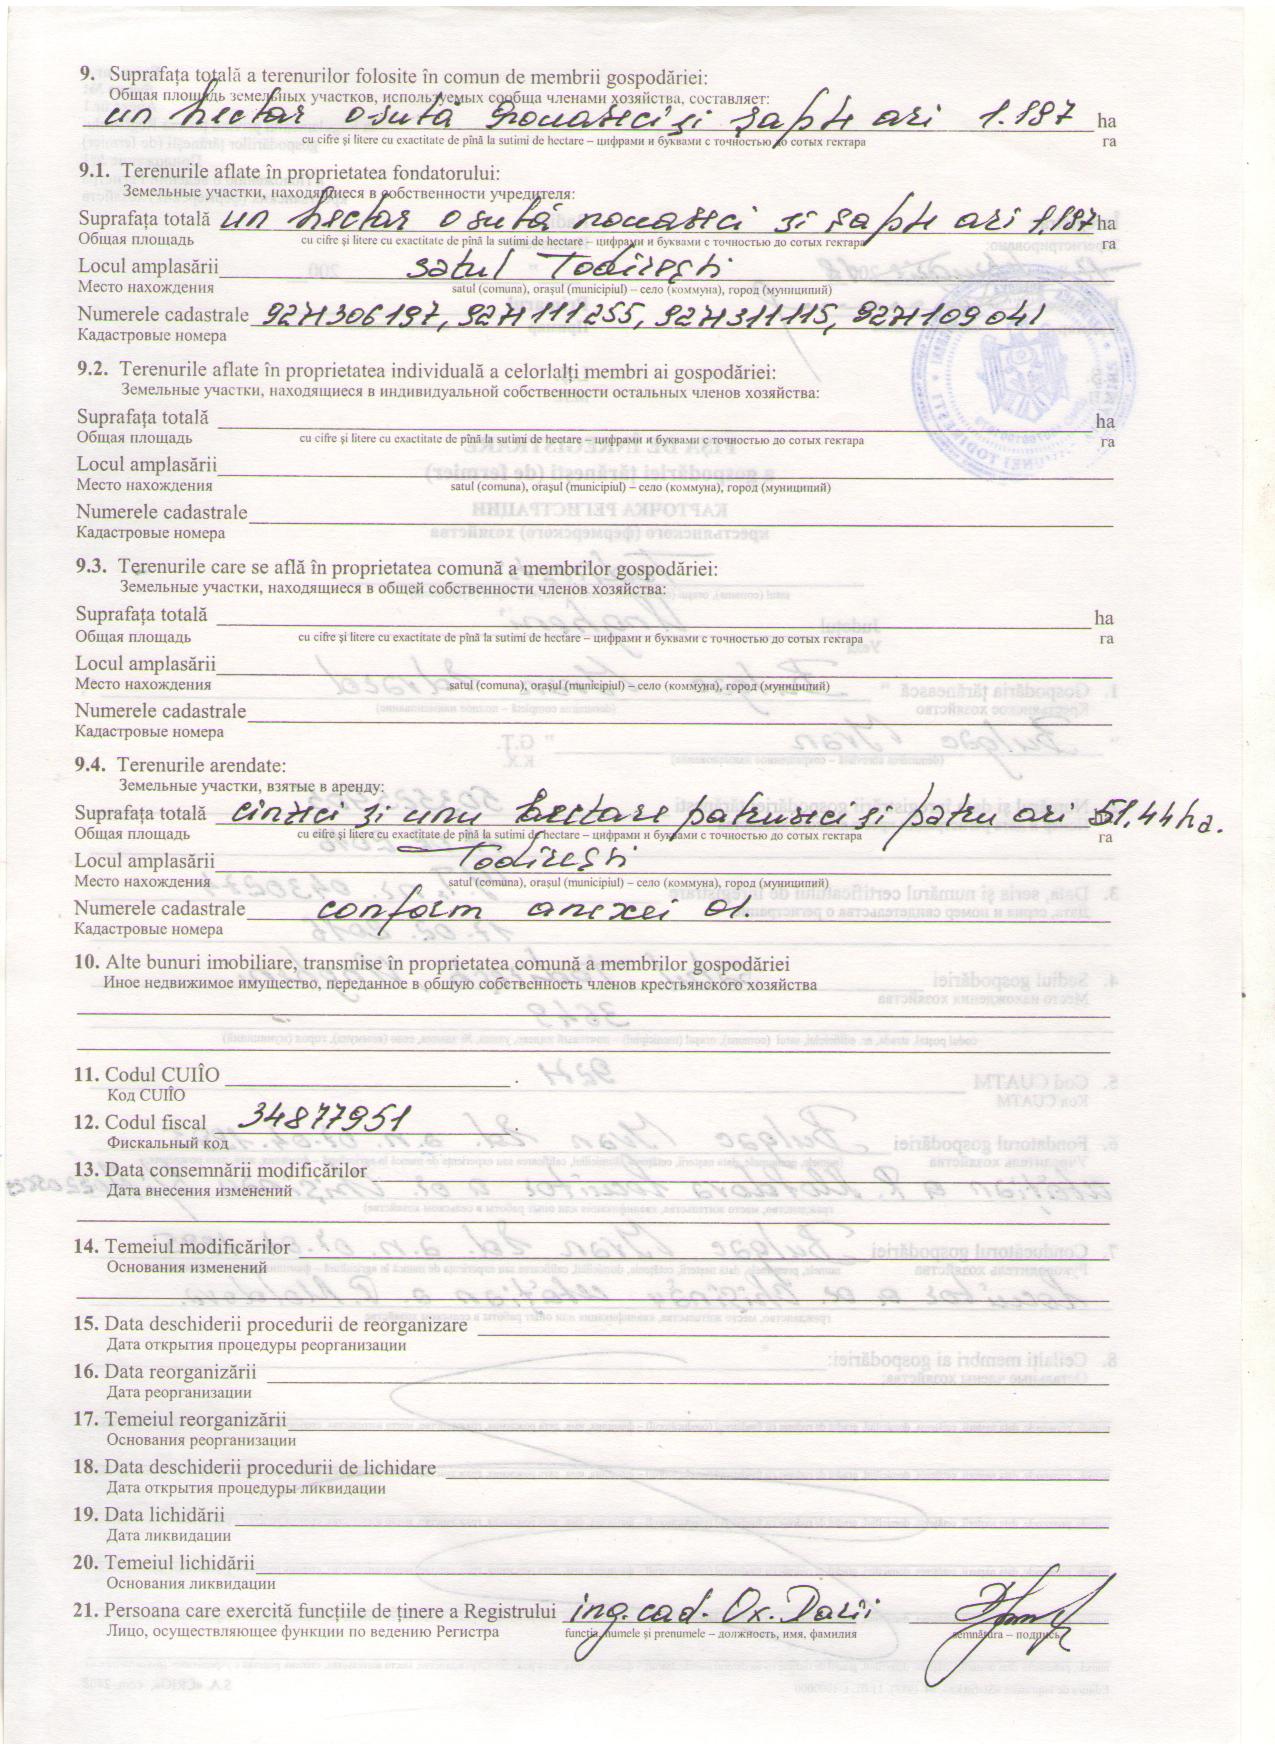 9. Suprafața totală a terenurilor folosite în comun de membrii gospodăriei:
Общая площадь земельных участков, используемых сообща членами хозяйства, составляет:
un hectar o sută nouăzeci și șapte ari 1.197 ha
cu cifre și litere cu exactitate de pînă la sutimi de hectare – цифрами и буквами с точностью до сотых гектара га
9.1. Terenurile aflate în proprietatea fondatorului:
Земельные участки, находящиеся в собственности учредителя:
Suprafața totală un hectar o sută nouăzeci și șapte ari 1,197 ha
Общая площадь cu cifre și litere cu exactitate de pînă la sutimi de hectare – цифрами и буквами с точностью до сотых гектара га
Locul amplasării satul Todirești
Место нахождения satul (comuna), orașul (municipiul) – село (коммуна), город (муниципий)
Numerele cadastrale 9271306197, 9271111255, 9271311115, 9271109041
Кадастровые номера
9.2. Terenurile aflate în proprietatea individuală a celorlalți membri ai gospodăriei:
Земельные участки, находящиеся в индивидуальной собственности остальных членов хозяйства:
Suprafața totală ha
Общая площадь cu cifre și litere cu exactitate de pînă la sutimi de hectare – цифрами и буквами с точностью до сотых гектара га
Locul amplasării
Место нахождения satul (comuna), orașul (municipiul) – село (коммуна), город (муниципий)
Numerele cadastrale
Кадастровые номера
9.3. Terenurile care se află în proprietatea comună a membrilor gospodăriei:
Земельные участки, находящиеся в общей собственности членов хозяйства:
Suprafața totală ha
Общая площадь cu cifre și litere cu exactitate de pînă la sutimi de hectare – цифрами и буквами с точностью до сотых гектара га
Locul amplasării
Место нахождения satul (comuna), orașul (municipiul) – село (коммуна), город (муниципий)
Numerele cadastrale
Кадастровые номера
9.4. Terenurile arendate:
Земельные участки, взятые в аренду:
Suprafața totală cinzeci și unu hectare patruzeci și patru ari 51.44 ha.
Общая площадь cu cifre și litere cu exactitate de pînă la sutimi de hectare – цифрами и буквами с точностью до сотых гектара га
Locul amplasării Todirești
Место нахождения satul (comuna), orașul (municipiul) – село (коммуна), город (муниципий)
Numerele cadastrale conform anexei 01.
Кадастровые номера
10. Alte bunuri imobiliare, transmise în proprietatea comună a membrilor gospodăriei
Иное недвижимое имущество, переданное в общую собственность членов крестьянского хозяйства
11. Codul CUIÎO .
Код CUIÎO
12. Codul fiscal 34877951 .
Фискальный код
13. Data consemnării modificărilor
Дата внесения изменений
14. Temeiul modificărilor
Основания изменений
15. Data deschiderii procedurii de reorganizare
Дата открытия процедуры реорганизации
16. Data reorganizării
Дата реорганизации
17. Temeiul reorganizării
Основания реорганизации
18. Data deschiderii procedurii de lichidare
Дата открытия процедуры ликвидации
19. Data lichidării
Дата ликвидации
20. Temeiul lichidării
Основания ликвидации
21. Persoana care exercită funcțiile de ținere a Registrului ing. cad. Ox. Darii
Лицо, осуществляющее функции по ведению Регистра funcția, numele și prenumele – должность, имя, фамилия semnătura – подпись